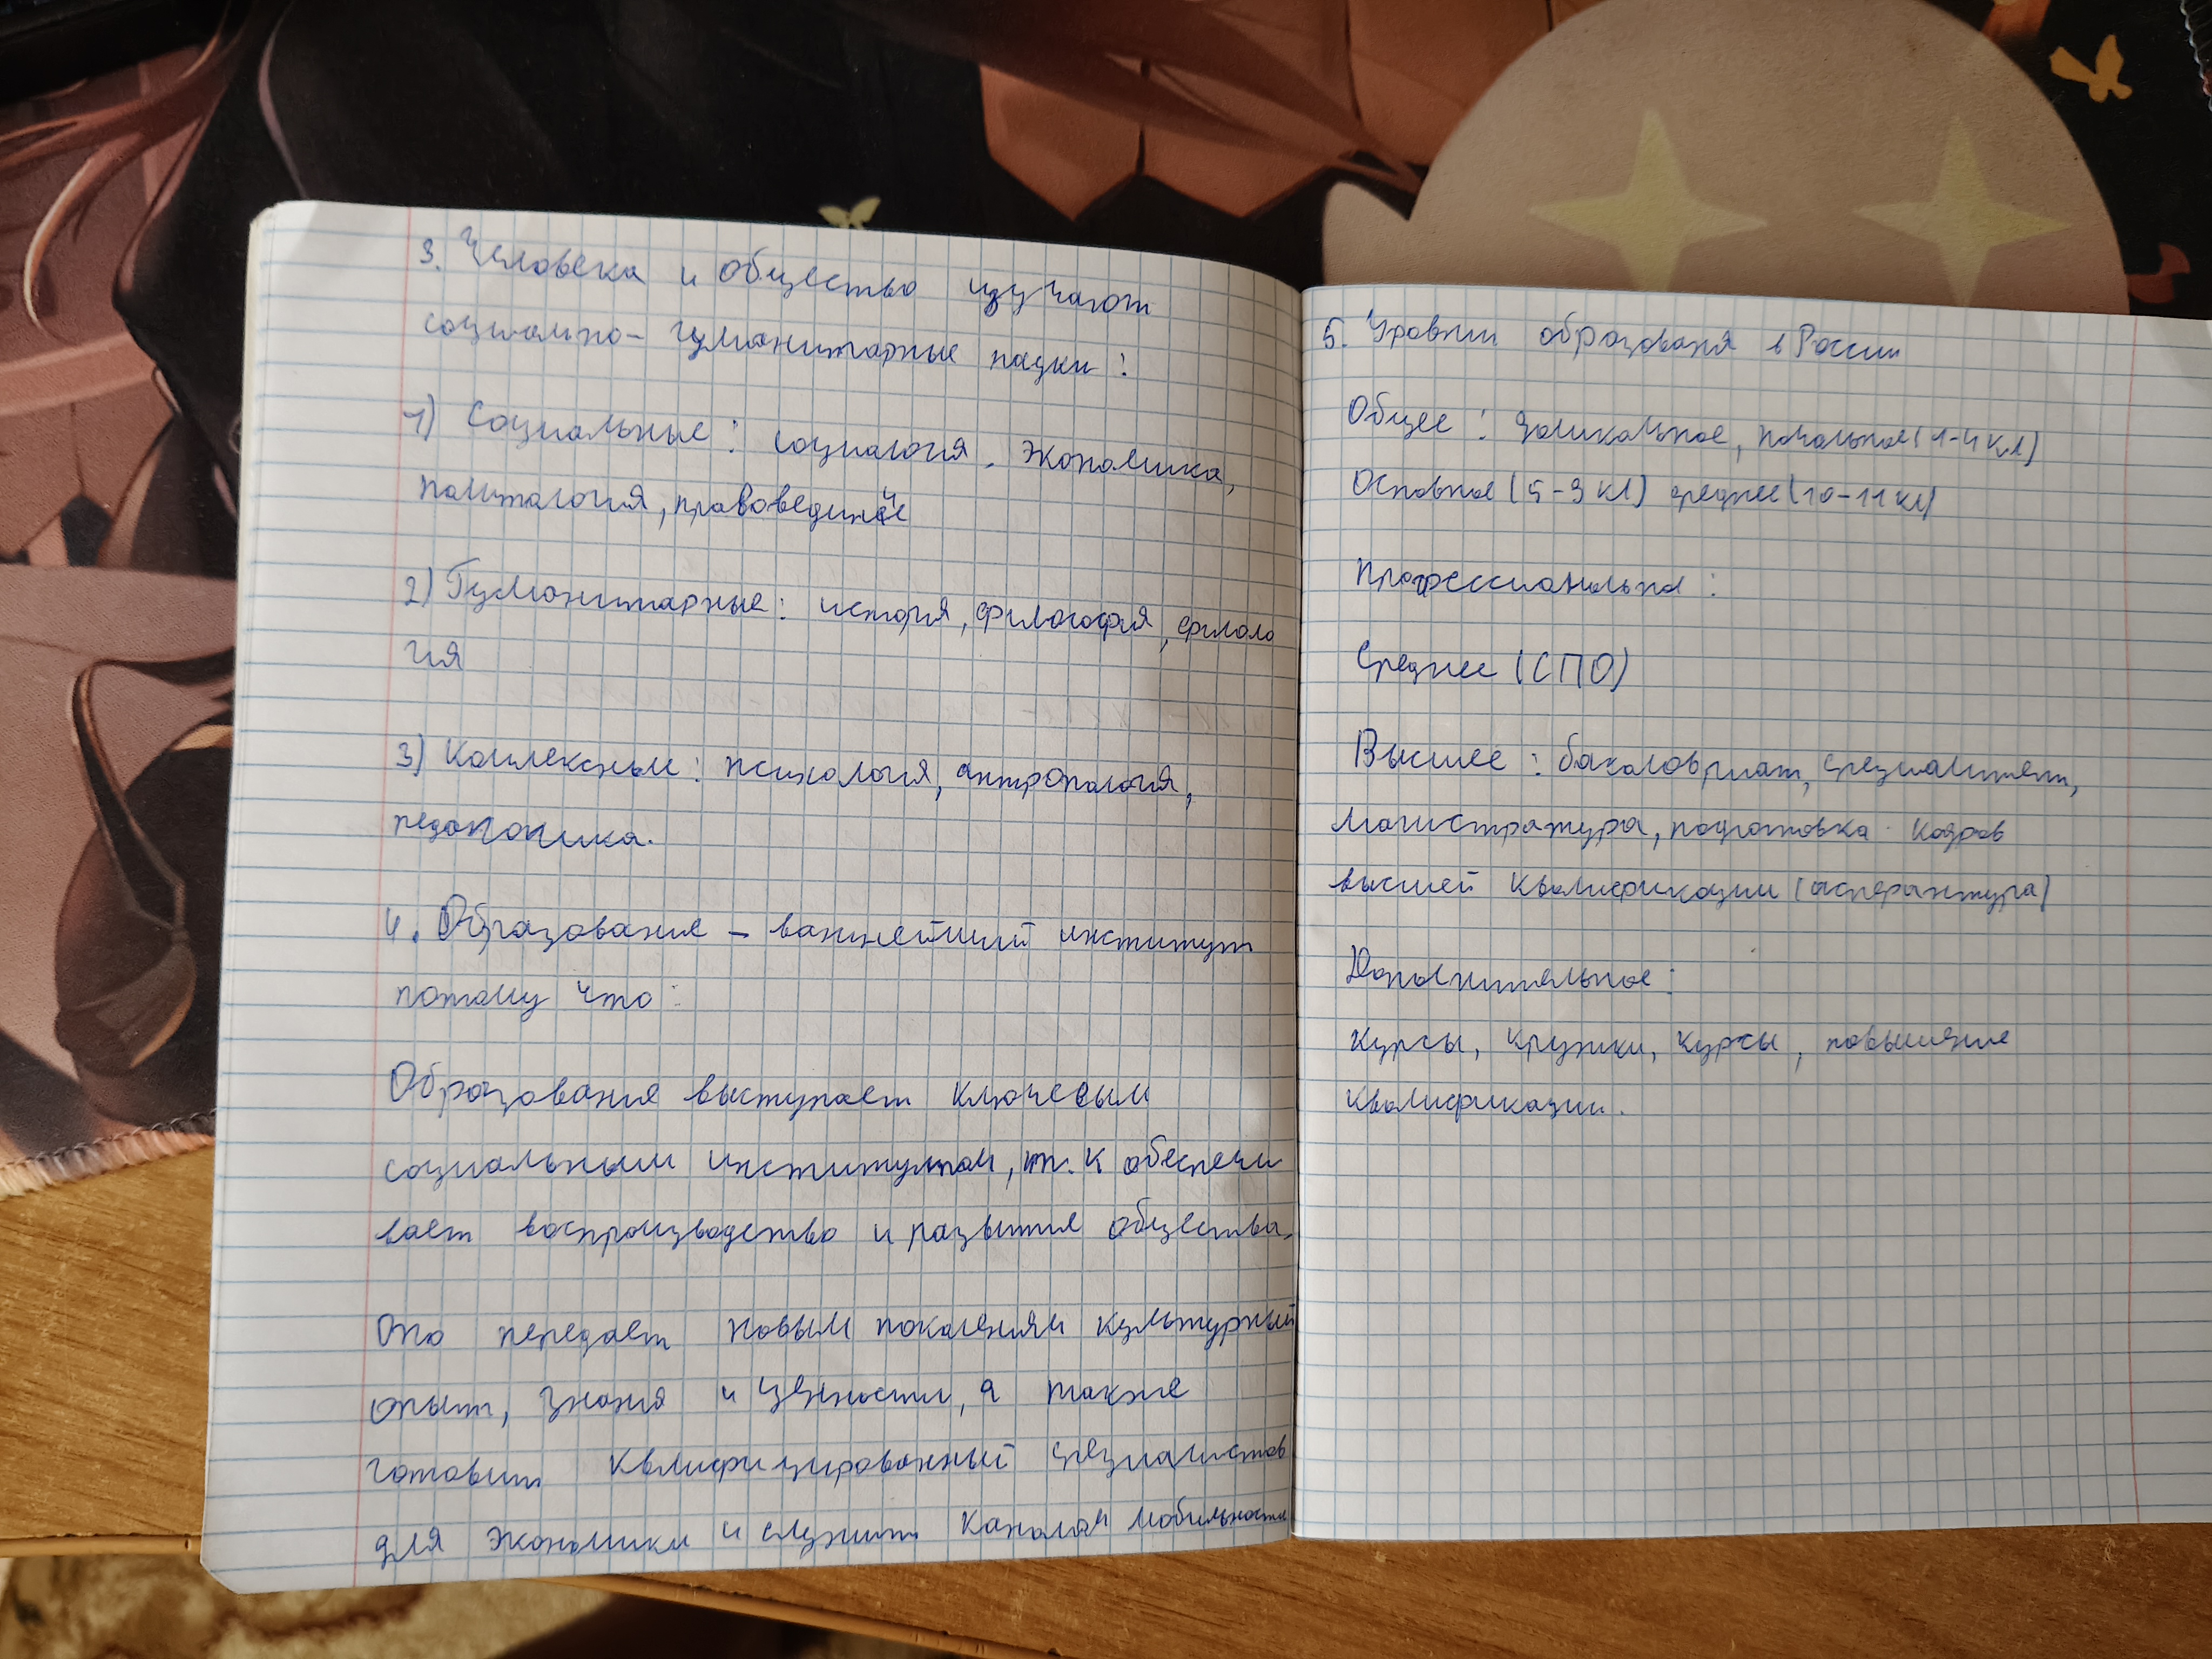 3. Человека и общество изучают
социально- гуманитарные науки:
1) Социальные: социология, экономика,
политология, правоведение
2) Гуманитарные: история, философия, филоло
гия
3) Комлексные: психология, антропология,
педагогика.
4. Образование – важнейший институт
потому что:
Образование выступает ключевым
социальным институтом, т.к обеспечи
вает воспроизводство и развитие общества.
Оно передает новым поколениям культурный
опыт, знания и ценности, а также
готовит квалифицированный специалистов
для экономики и служит каналом мобильности
5. Уровни образования в России
Общее: дошкольное, начальное (1-4 кл)
Основное (5-9 кл) среднее (10-11 кл)
Профессиональное:
Среднее (СПО)
Высшее: бакалавриат, специалитет,
магистратура, подготовка кадров
высшей квалификации (аспирантура)
Дополнительное:
курсы, кружки, курсы, повышение
квалификации.